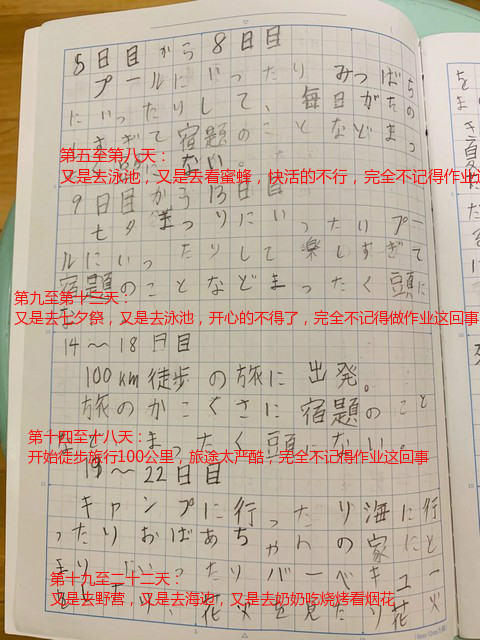 5日目から8日目
プールにいったり みつばち
にいったりして、毎日がたの
しすぎて宿題のことなどまっ
第五至第八天：
又是去泳池，又是去看蜜蜂，快活的不行，完全不记得作业
9日目から13日目
七夕まつりにいったりプー
ルにいったりして楽しすぎて
宿題のことなどまったく頭に
第九至第十三天：
又是去七夕祭，又是去泳池，开心的不得了，完全不记得做作业这回事
14〜18日目
100km徒歩の旅に出発。
旅のかこくさに宿題のこと
第十四至十八天：
など まったく頭にない。
开始徒步旅行100公里，旅途太严酷，完全不记得作业这回事
19〜22日目
キャンプに行ったり海に行
ったりおばあちゃんの家に行
ったりバーベキュー
第十九至二十二天：
又是去野营，又是去海边，又是去奶奶吃烧烤看烟花
花火を見たり